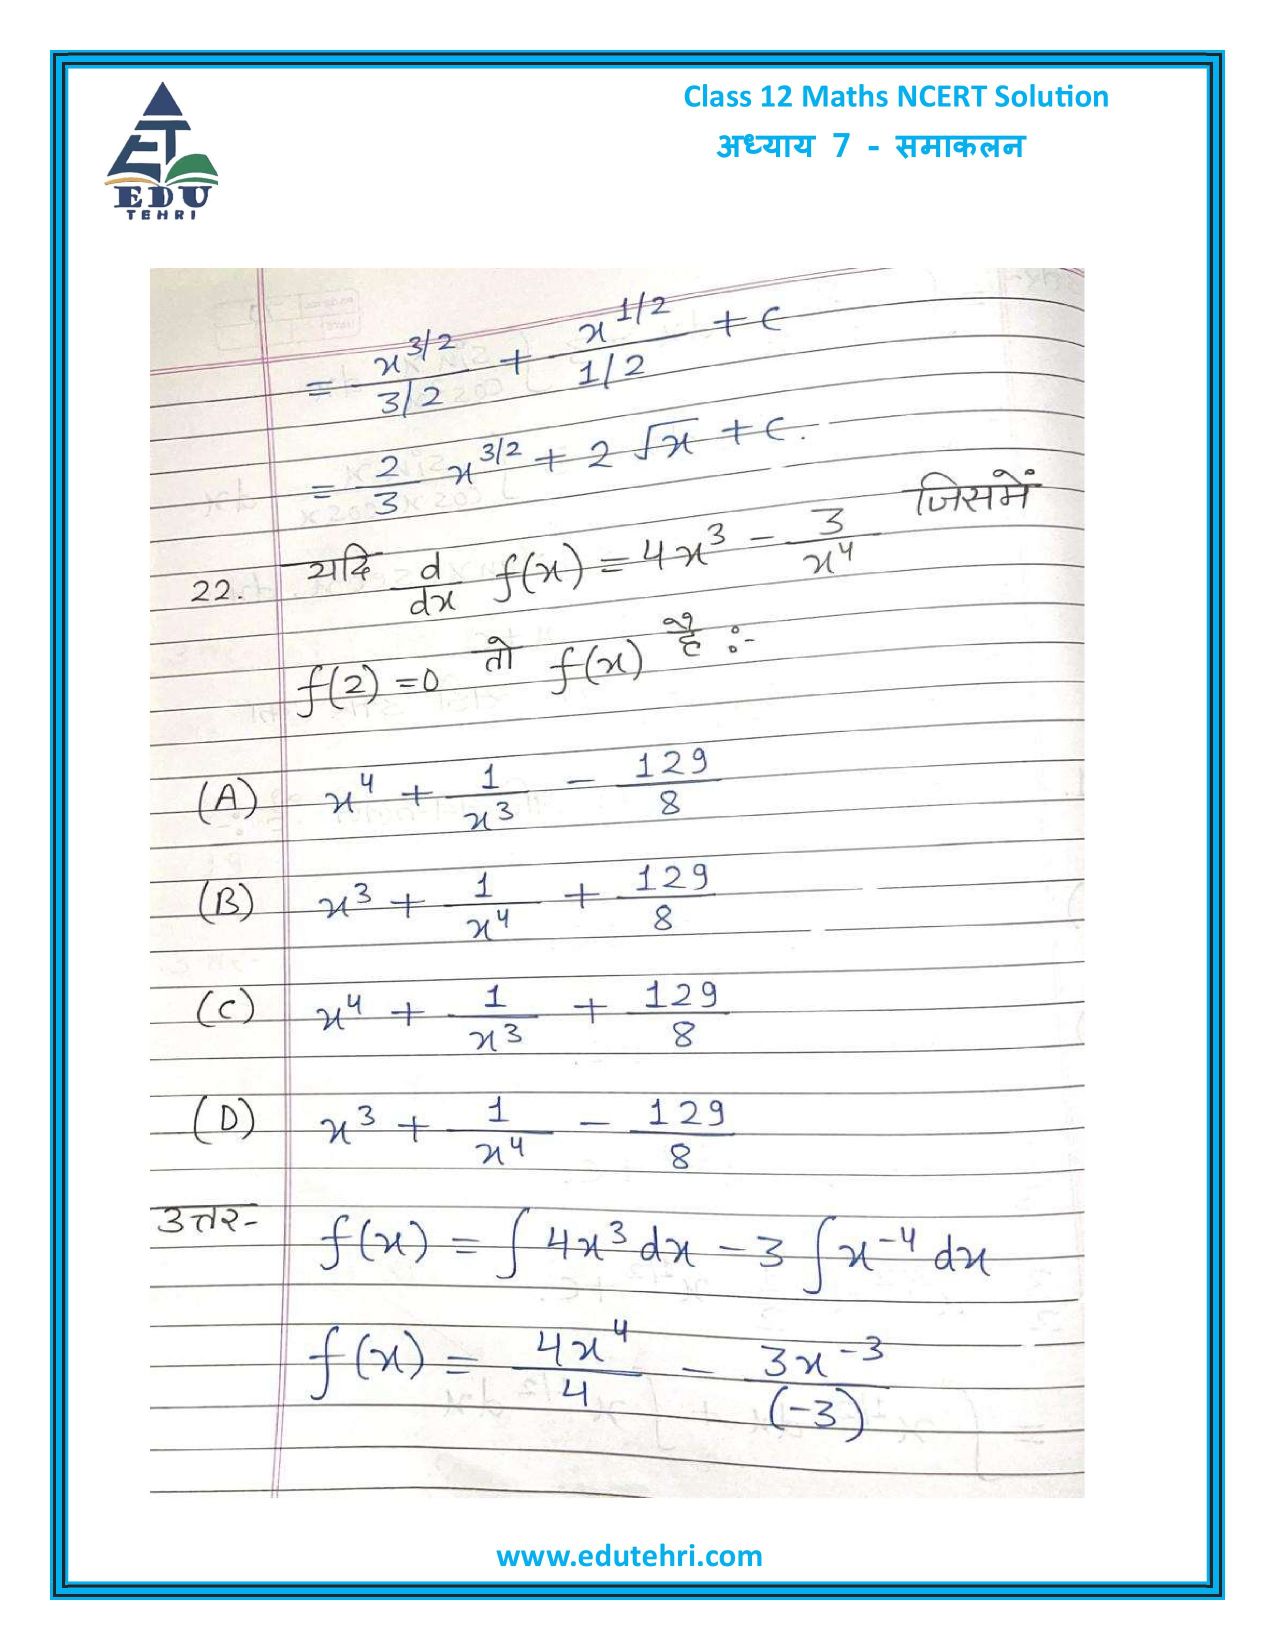 Class 12 Maths NCERT Solution
अध्याय 7 - समाकलन
EDU
TEHRI
= x^3/2 / 3/2 + x^1/2 / 1/2 + c
= 2/3 x^3/2 + 2 √x + c.
22. यदि d/dx f(x) = 4x^3 - 3/x^4 जिसमें
f(2) = 0 तो f(x) है :-
(A) x^4 + 1/x^3 - 129/8
(B) x^3 + 1/x^4 + 129/8
(C) x^4 + 1/x^3 + 129/8
(D) x^3 + 1/x^4 - 129/8
उत्तर- f(x) = ∫ 4x^3 dx - 3 ∫ x^-4 dx
f(x) = 4x^4 / 4 - 3x^-3 / (-3)
www.edutehri.com